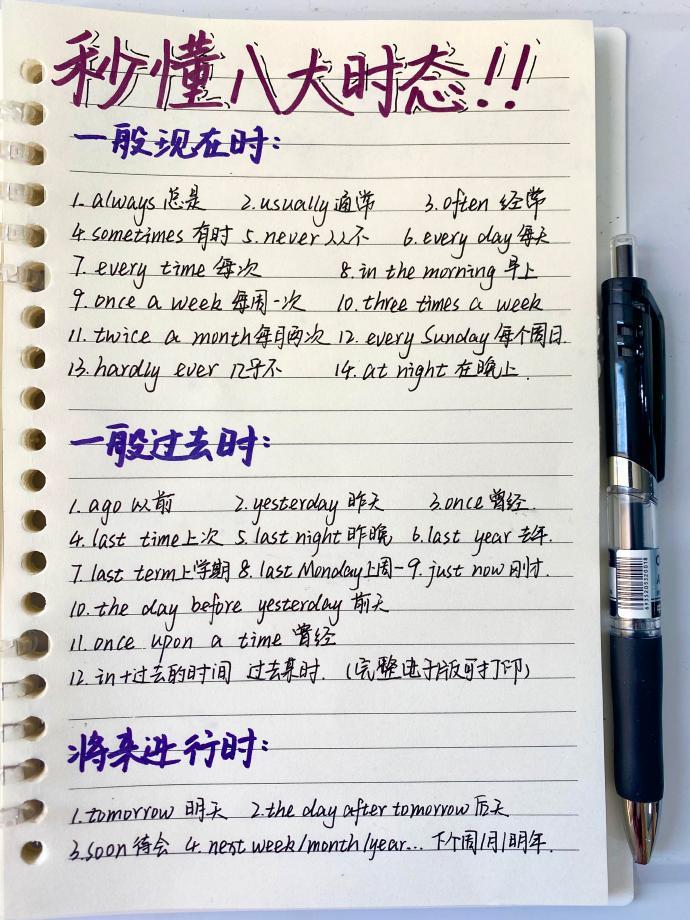 秒懂八大时态!!
一般现在时:
1. always 总是 2. usually 通常 3. often 经常
4. sometimes 有时 5. never 从不 6. every day 每天
7. every time 每次 8. in the morning 早上
9. once a week 每周一次 10. three times a week
11. twice a month 每月两次 12. every Sunday 每个周日.
13. hardly ever 几乎不 14. at night 在晚上.
一般过去时:
1. ago 以前 2. yesterday 昨天 3. once 曾经.
4. last time 上次 5. last night 昨晚 6. last year 去年.
7. last term 上学期 8. last Monday 上周一 9. just now 刚才.
10. the day before yesterday 前天
11. once upon a time 曾经
12. in+过去的时间 过去某时. (完整电子版可打印)
将来进行时:
1. tomorrow 明天 2. the day after tomorrow 后天
3. soon 待会 4. next week/month/year... 下个周/月/明年.